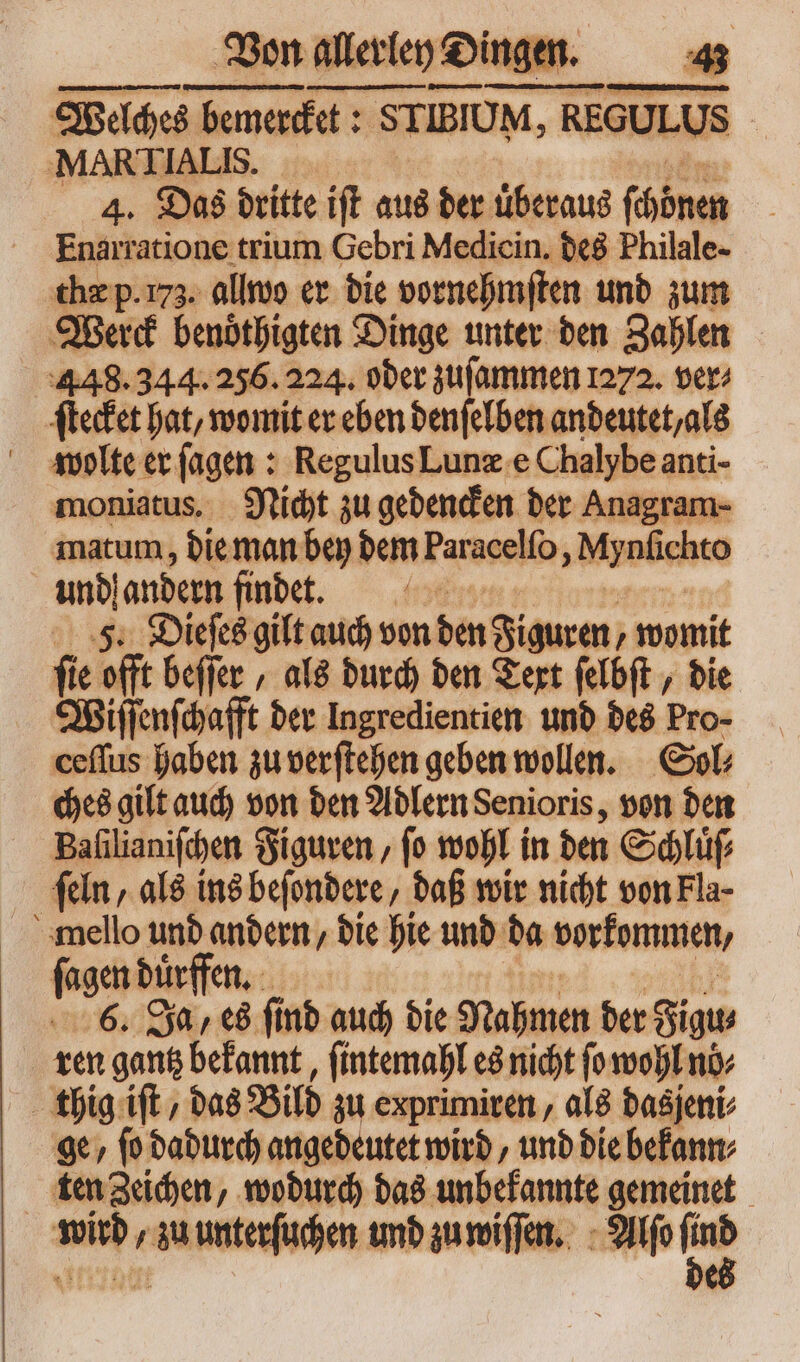 Von allerley Dingen. 43
Welches bemercket: STIBIUM, REGULUS
MARTIALIS.
4. Das dritte iſt aus der uͤberaus ſchoͤnen
Enarratione trium Gebri Medicin. des Philale-
thæ p. 173. allwo er die vornehmſten und zum
Werck benoͤthigten Dinge unter den Zahlen
448. 344. 256. 224. oder zuſammen 1272. ver⸗
ſtecket hat, womit er eben denſelben andeutet, als
wolte er ſagen: Regulus Lunæ e Chalybe anti-
moniatus. Nicht zu gedencken der Anagram-
matum, die man bey dem Paracelſo, Mynſichto
und andern findet.
5. Dieſes gilt auch von den Figuren, womit
ſie offt beſſer, als durch den Text ſelbſt, die
Wiſſenſchafft der Ingredientien und des Pro-
ceſſus haben zu verſtehen geben wollen. Sol⸗
ches gilt auch von den Adlern Senioris, von den
Baſilianiſchen Figuren, ſo wohl in den Schluͤſ⸗
ſeln, als ins beſondere, daß wir nicht von Fla-
mello und andern, die hie und da vorkommen,
ſagen duͤrffen.
6. Ja, es ſind auch die Nahmen der Figu⸗
ren gantz bekannt, ſintemahl es nicht ſo wohl noͤ⸗
thig iſt, das Bild zu exprimiren, als dasjeni⸗
ge, ſo dadurch angedeutet wird, und die bekann⸗
ten Zeichen, wodurch das unbekannte gemeinet
wird, zu unterſuchen und zu wiſſen. Alſo ſind
des